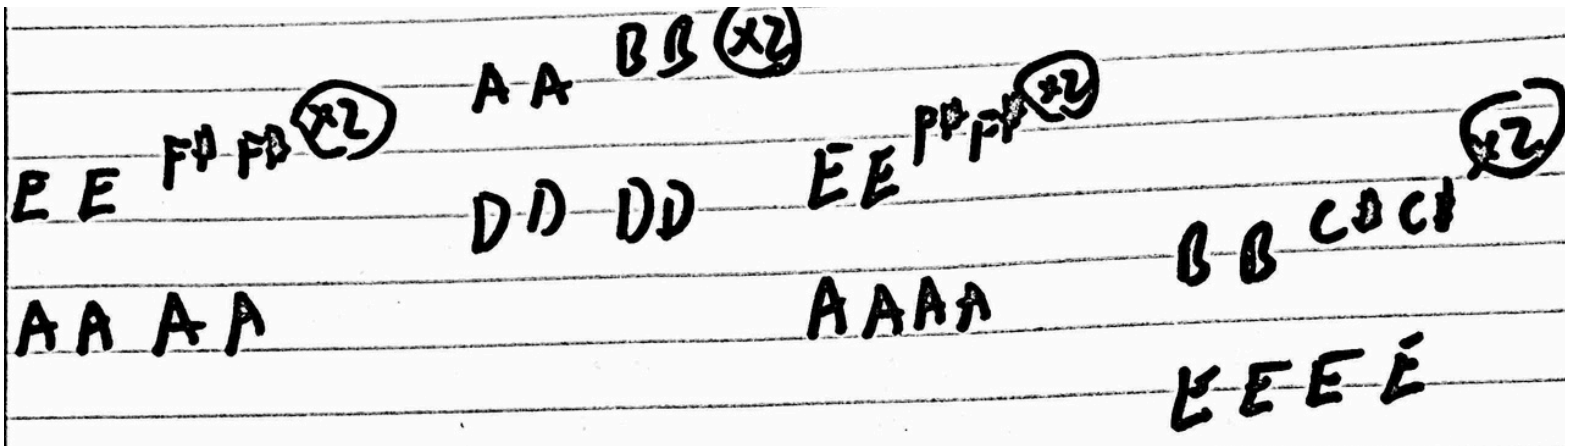 E E F# F# x2
A A A A
A A B B x2
D D D D
E E F# F# x2
A A A A
B B C# C# x2
E E E E